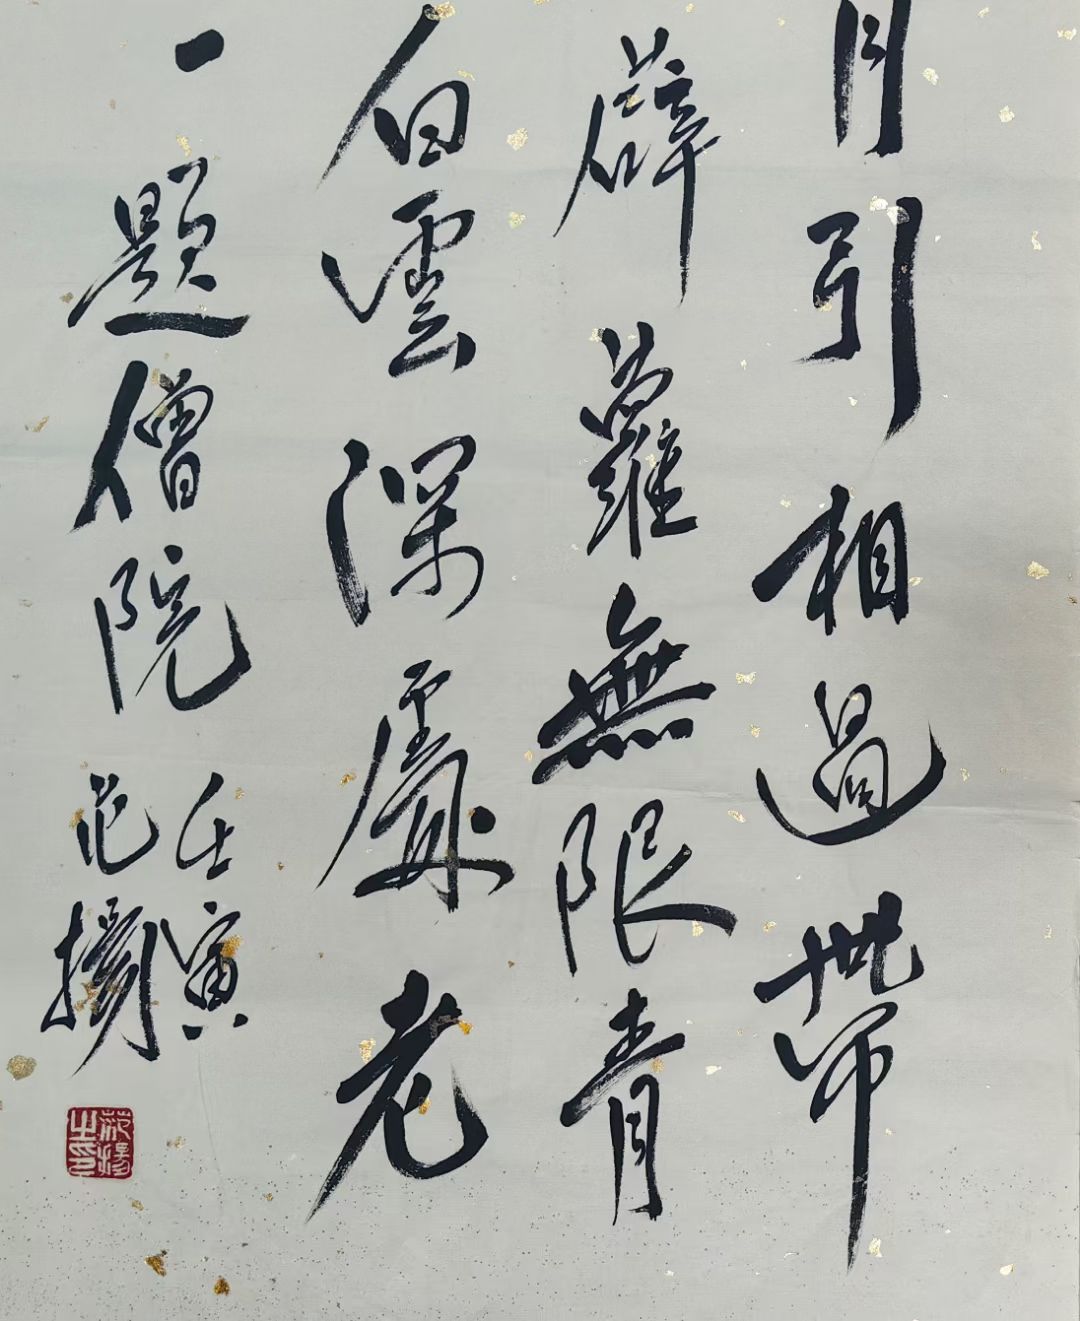 月引相過帶
薜蘿無限青
白雲深處老
一題僧院
壬寅
范揚
范揚之印